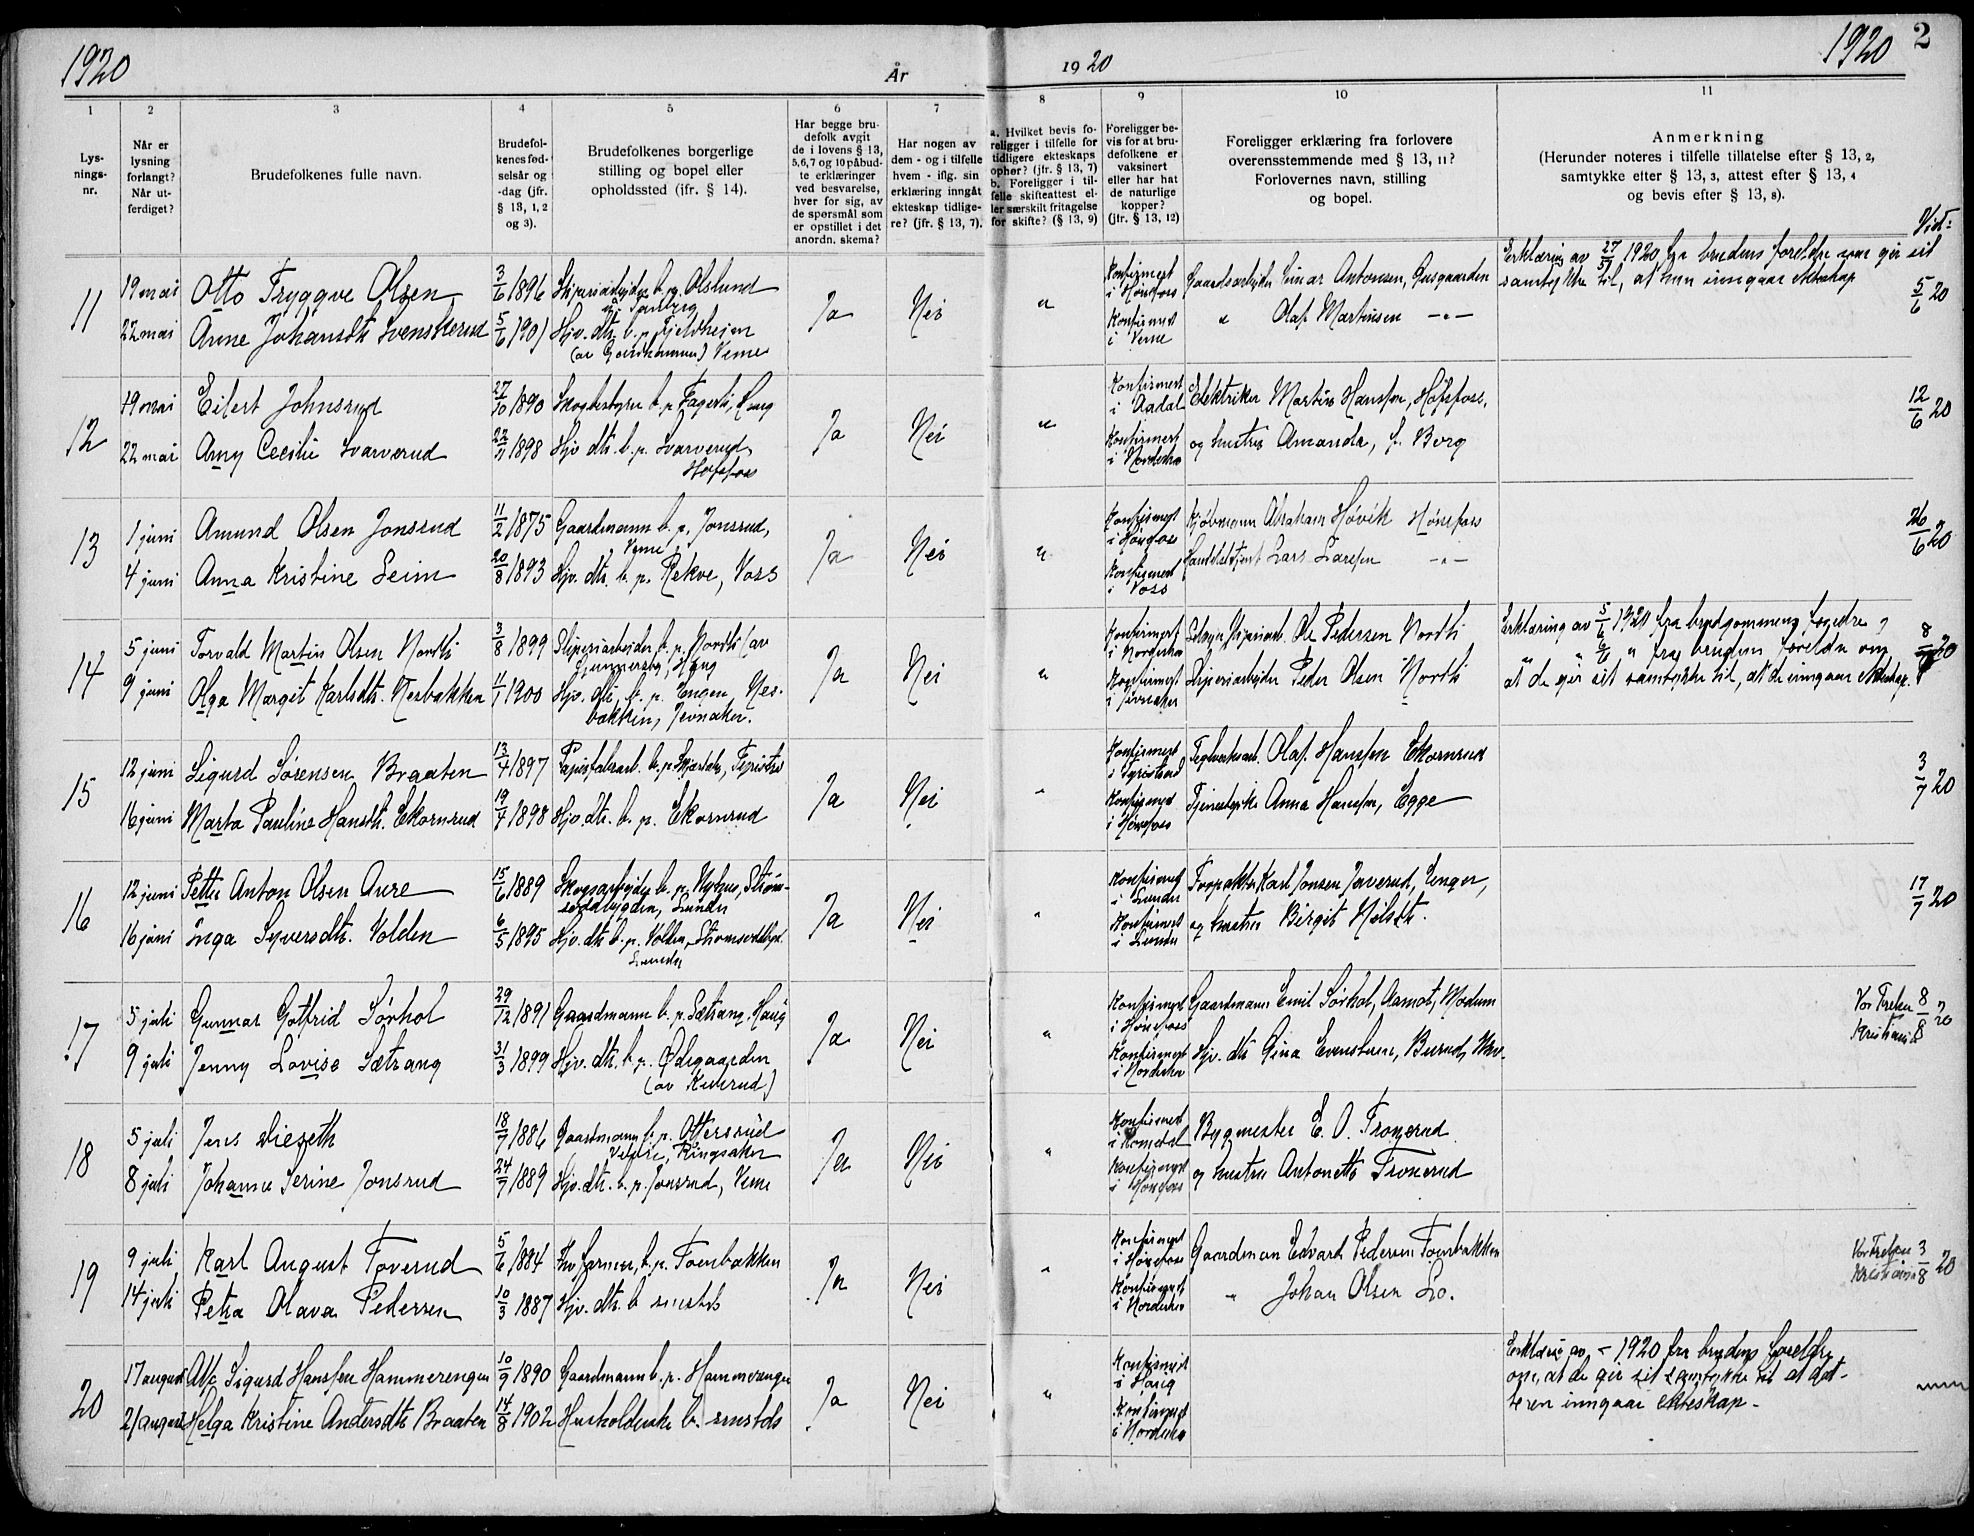 1920
År
1920
1920
2
1
2
3
4
5
6
7
8
9
10
11
Lys-
nings-
nr.
Når er
lysning
forlangt?
Når ut-
ferdiget?
Brudefolkenes fulle navn.
Brudefol-
kenes fød-
selsår og
-dag (jfr.
§ 13, 1, 2
og 3).
Brudefolkenes borgerlige
stilling og bopel eller
opholdssted (jfr. § 14).
Har begge bru-
defolk avgit
de i lovens § 13,
5,6,7 og 10 påbud-
te erklæringer
ved besvarelse,
hver for sig, av
de spørsmål som
er opstillet i det
anordn. skema?
Har nogen av
dem - og i tilfelle
hvem - iflg. sin
erklæring inngåt
ekteskap tidlige-
re? (jfr. § 13, 7).
a. Hvilket bevis fo-
religger i tilfelle for
tidligere ekteskaps
ophør? (jfr. § 13, 7)
b. Foreligger i til-
felle skifteattest el-
ler særskilt fritagelse
for skifte? (§ 13, 9)
Foreligger be-
vis for at bru-
defolkene er
vaksinert
eller har hat
de naturlige
kopper?
(jfr. § 13, 12)
Foreligger erklæring fra forlovere
overensstemmende med § 13, 11?
Forlovernes navn, stilling
og bopel.
Anmerkning
(Herunder noteres i tilfelle tillatelse efter § 13, 2,
samtykke efter § 13, 3, attest efter § 13, 4
og bevis efter § 13, 8).
Vid:
11
19 mai Otto Tryggve Olsen 3/6 1896 Sliperiarbeider b. p. Olslund
Ja Nei "
Konfirmert i Hønefoss
Gaardsarbeider Einar Antonsen,
Erklæring av 1920 fra brudens foreldre som gir sit
samtykke til, at hun inngaar ekteskap
5/6 20
22 mai Anne Johansdtr. Svenskerud 5/6 1901 Hjv. dtr. b. p. Fjeldheim
Veme
Konfirmert i Veme
" Olaf Martinsen -"-
12
19 mai Eilert Johnsrud 27/10 1890 Skogbestyrer b. p. Fagerli, Haug
Ja Nei "
Konfirmert i Aadal
Elektriker Martin Hansen, Hofsfoss,
12/6 20
22 mai Amy Cecilie Svarverud 1898 Hjv. dtr. b. p. Svarverud,
Hofsfoss
Konfirmert i Norderhov
og hustru Amanda, f. Berg
13
1 juni Amund Olsen Jonsrud 11/2 1875 Gaardmann b. p. Jonsrud,
Veme
Ja Nei "
Konfirmert i Hønefoss
Kjøbmann Abraham Høvik Hønefoss
26/6 20
4 juni Anna Kristine Seim 20/8 1893 Hjv. dtr. b. p. Rekve, Voss
Konfirmert i Voss
Handelsbetjent Lars Larsen -"-
14
5 juni Torvald Martin Olsen Nordli 3/8 1899 Sliperiarbeider b. p. Nordli (av
Gunnersby, Haug
Ja Nei "
Konfirmert i Norderhov
Ole Pedersen Nordli
Erklæring av 5/6 1920 fra brudgommens foreldre og
" " fra brudens foreldre om,
at de gir sit samtykke til, at de inngaar ekteskap.
20
9 juni Olga Margit Karlsdtr. Nesbakken 1900 Hjv. dtr. b. p. Engen, Nes-
bakken, Jevnaker.
Konfirmert i Jevnaker
Sliperiarbeider Peder Olsen Nordli
15
12 juni Sigurd Sørensen Braaten 13/4 1897 Papirfabrarb. b. p. Skjærdalen, Tyristrand
Ja Nei
Konfirmert i Tyristrand
Teglverksarb. Olaf Hansen Ekornrud
3/7 20
16 juni Marta Pauline Hansdtr. Ekornrud 19/4 1898 Hjv. dtr. b. p. Ekornrud
Konfirmert i Hønefoss
Tjenestepike Anna Hansen, Egge
16
12 juni Petter Anton Olsen Aure 15/6 1889 Skogsarbeider b. p. Nyhus, Strøm-
soddbygden, Lunder
Ja Nei "
Konfirmert i Lunder
Forpakter Karl Jonsen Javerud,
17/7 20
16 juni Inga Syversdtr. Volden 6/5 1895 Hjv. dtr. b. p. Volden, Strømsoddbyd.
Lunder
Konfirmert i Lunder
og hustru Birgit
17
5 juli Gunnar Gotfrid Sørhol 29/12 1891 Gaardmann b. p. Sætrang, Haug
Ja Nei "
Konfirmert i Hønefoss
Gaardmann Emil Sørhol, Aamot, Modum
Vor Frelser 8/8 20
Kristiania
9 juli Jenny Lovise Sætrang 31/3 1899 Hjv. dtr. b. p. Ødegaarden
Konfirmert i Norderhov
Hjv. dtr. Gina Evensteen,
18
5 juli Jens Dieseth 18/7 1886 Gaardmann b. p. Ottersrud
Veldre, Ringsaker
Ja Nei "
Konfirmert i Romedal
Bygmester E. O. Tronerud
8 juli Johanne Serine Jonsrud 24/7 1889 Hjv. dtr. b. p. Jonsrud, Veme
Konfirmert i Hønefoss
og hustru Antonette Tronerud
19
9 juli Karl August Toverud 5/6 1884 Fhv. farmer, b. p. Toenbakken
Ja Nei "
Konfirmert i Hønefoss
Gaardman Edvard Pedersen Toenbakken
Vor Frelser 3/8 20
Kristiania
14 juli Petra Olava Pedersen 10/3 1887 Hjv. dtr. b smstds
Konfirmert i Norderhov
" Johan Olsen Lo.
20
17 august Alf Sigurd Hansen Hammerengen 10/9 1890 Gaardmann b. p. Hammerengen
Ja Nei "
Konfirmert i Haug
Erklæring av - 1920 fra brudens foreldre
om, at de gir sit samtykke til at dat-
teren inngaar ekteskap.
21 august Helga Kristine Andersdtr. Braaten 14/8 1902 Husholderske b. smstds
Konfirmert i Norderhov